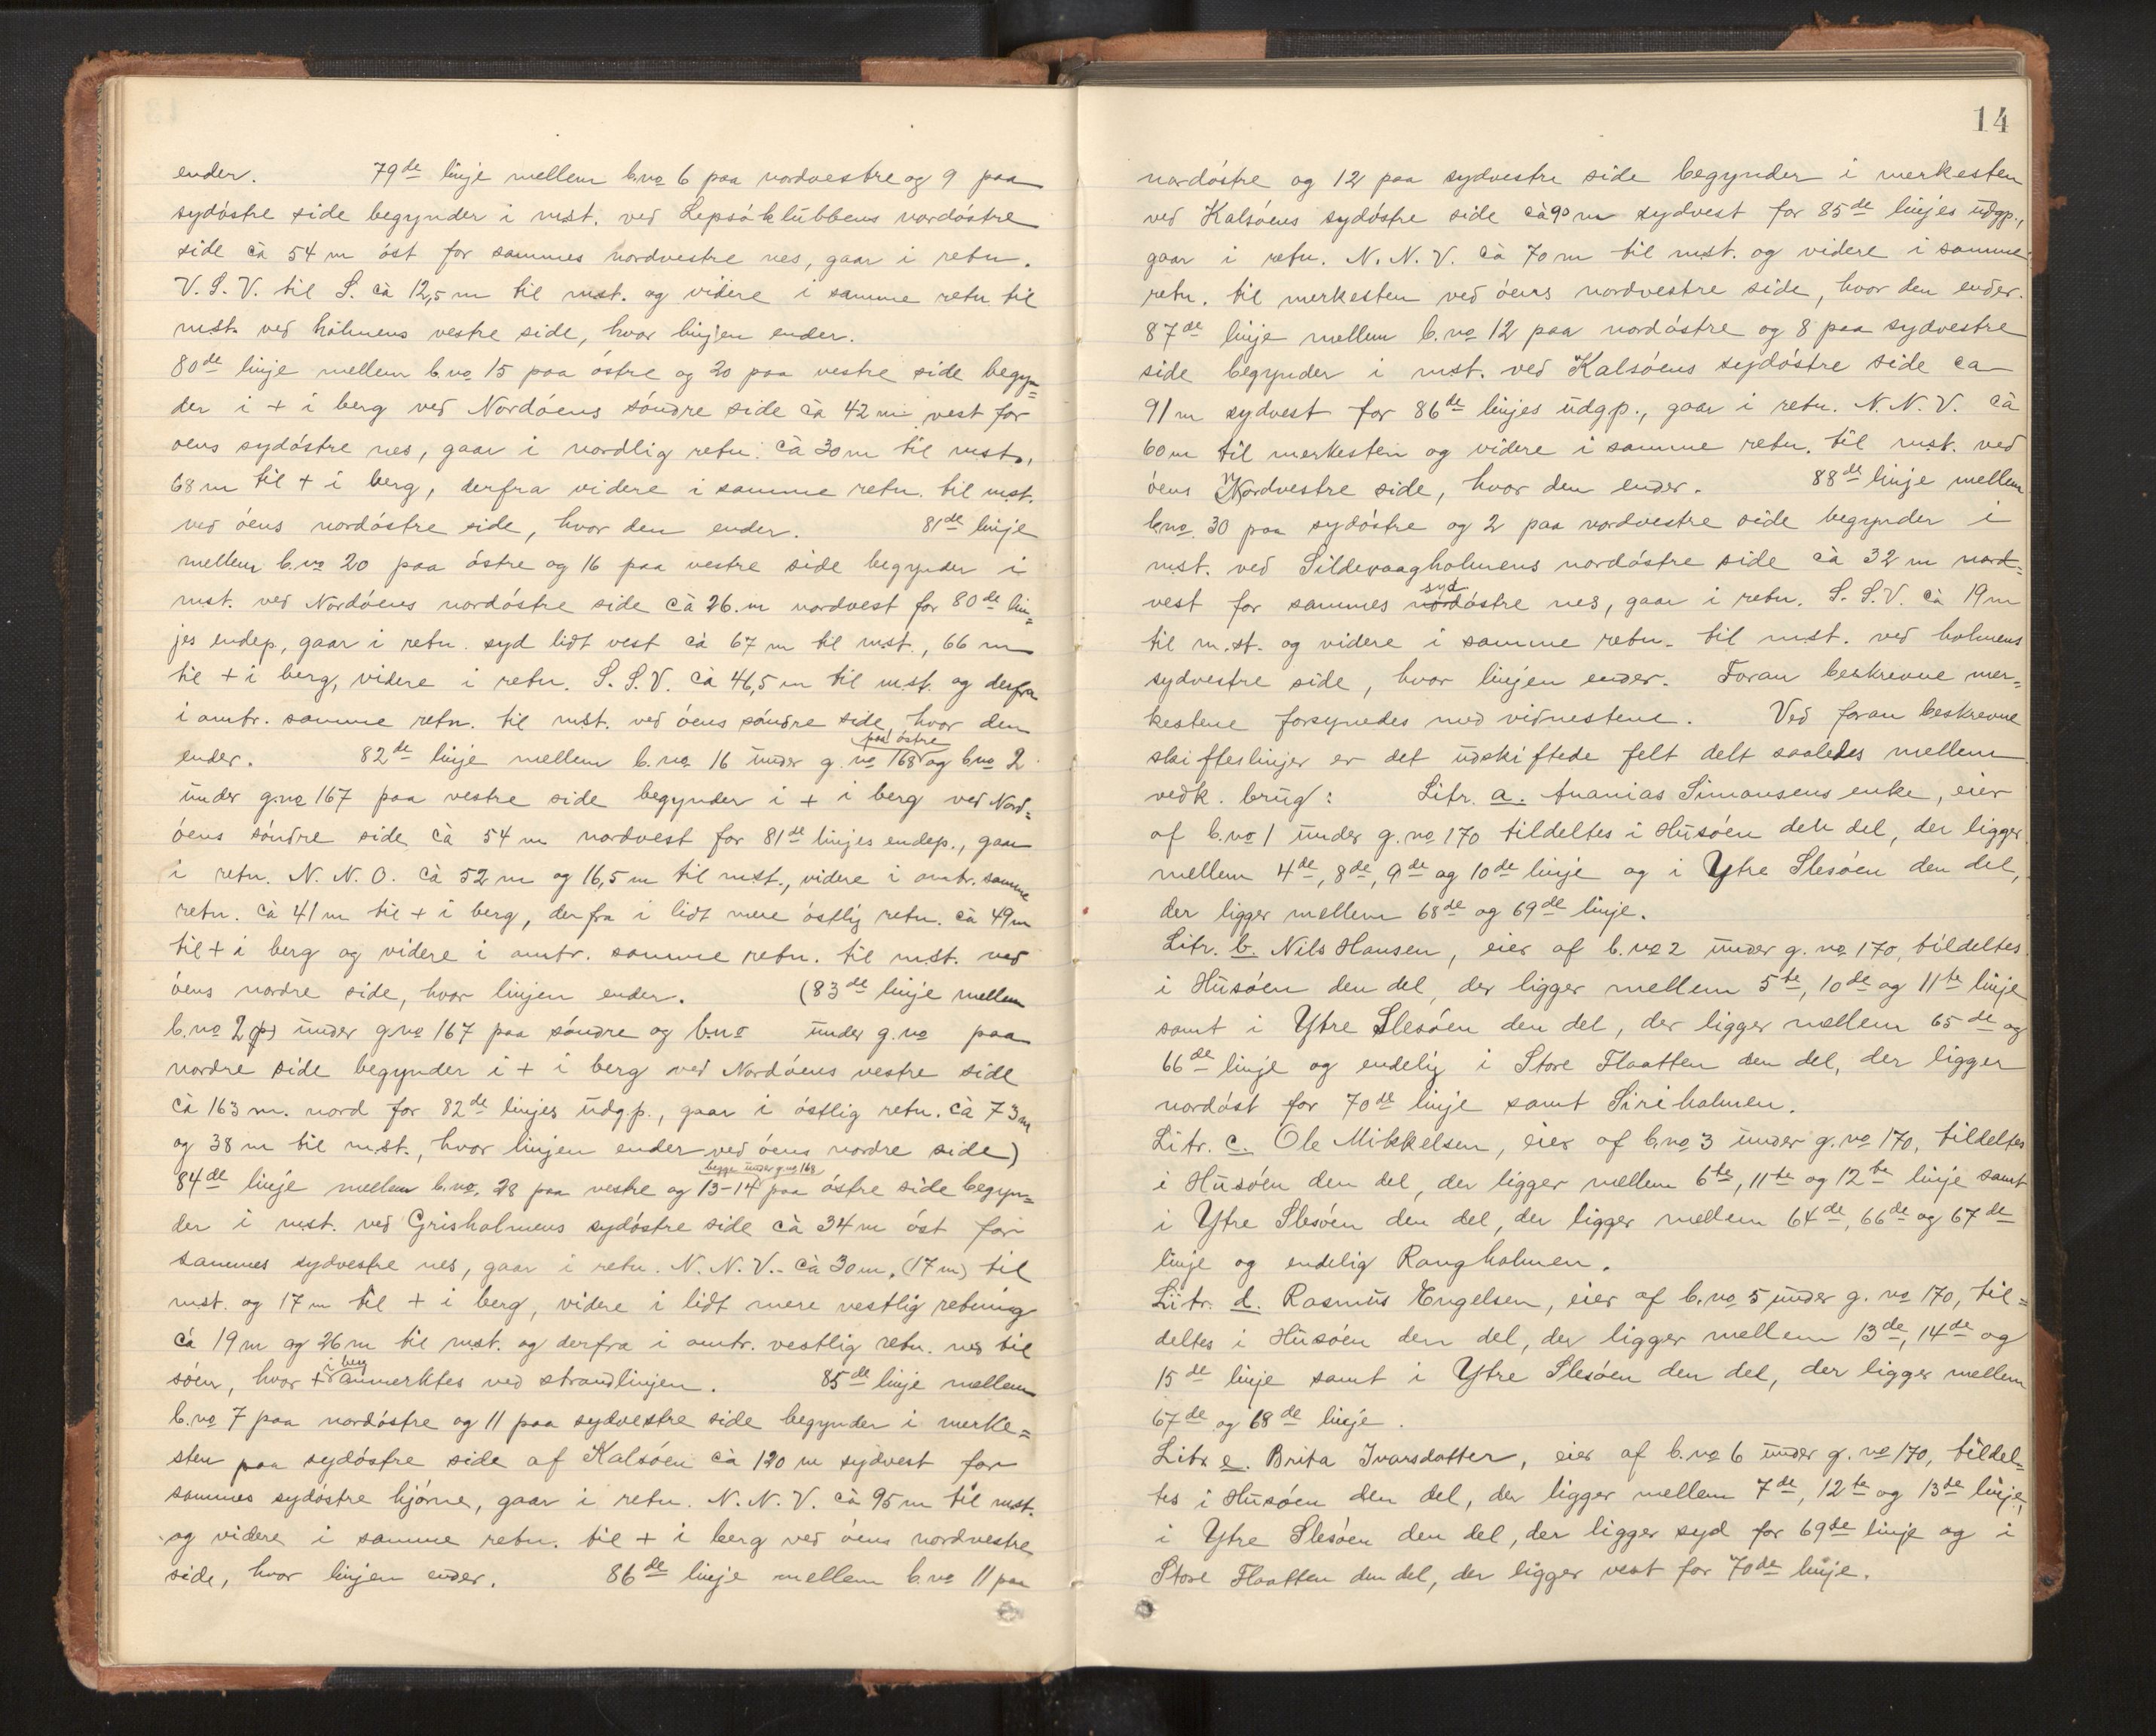 ender. 79de linje mellem b.no 6 paa nordvestre og 9 paa
sydóstre side begynder i mst. ved Lepsóklubbens nordóstre
side cà 54 m óst for sammes nordvestre nes, gaar i retn.
V.S.V. til S. cà 12,5 m til mst. og videre i samme retn til
mst. ved holmens vestre side, hvor linjen ender.
80de linje mellem b.no 15 paa óstre og 20 paa vestre side begyn=
der i + i berg ved Nordóens sóndre side cà 42 m vest for
oens sydóstre nes, gaar i nordlig retn. cà 30 m til mst.,
68 m til + i berg, derfra videre i samme retn. til mst.
ved óens nordóstre side, hvor den ender. 81de linje
mellem b.no 20 paa óstre og 16 paa vestre side begynder i
mst. ved Nordóens nordóstre side cà 26. m nordvest for 80de lin=
jes endep, gaar i retn. syd lidt vest cà 67 m til mst., 66 m
til + i berg, videre i retn. S.S.V. cà 46,5 m til mst. og derfra
i omtr. samme retn. til mst. ved óens sóndre side, hvor den
paa óstre
ender. 82de linje mellem b.no 16 under g.no 168 og b.no 2
under g.no 167 paa vestre side begynder i + i berg ved Nord=
óens sóndre side cà 54 m nordvest for 81de linjes endep., gaar
i retn. N.N.O. cà 52 m og 16,5 m til mst., videre i omtr. samme
retn. cà 41 m til + i berg, derfra i lidt mere óstlig retn. cà 49 m
til + i berg og videre i omtr. samme retn. til mst. ved
óens nordre side, hvor linjen ender. (83de linje mellem
b.no 2 under g.no 167 paa sóndre og b.no under g.no paa
nordre side begynder i + i berg ved Nordóens vestre side
cà 163 m. nord for 82de linjes udgp., gaar i óstlig retn. cà 73 m
og 38 m til mst., hvor linjen ender ved óens nordre side)
begge under g.no 168
84de linje mellem b.no. 28 paa vestre og 13-14 paa óstre side begyn=
der i mst. ved Grisholmens sydóstre side cà 34 m óst for
sammes sydvestre nes, gaar i retn. N.N.V. cà 30 m. (17 m) til
mst. og 17 m til + i berg, videre i lidt mere vestlig retning
cà 19 m og 26 m til mst. og derfra i omtr. vestlig retn. ned til
i berg
sóen, hvor + anmerktes ved strandlinjen. 85de linje mellem
b.no 7 paa nordóstre og 11 paa sydvestre side begynder i merke=
sten paa sydóstre side af Kalsóen cà 120 m sydvest for
sammes sydóstre hjórne, gaar i retn. N.N.V. cà 95 m til mst.
og videre i samme retn. til + i berg ved óens nordvestre
side, hvor linjen ender. 86de linje mellem b.no 11 paa
14
nordóstre og 12 paa sydvestre side begynder i merkesten
ved Kalsóens sydóstre side cà 90 m sydvest for 85de linjes udgp.,
gaar i retn. N.N.V. cà 70 m til mst. og videre i samme
retn. til merkesten ved óens nordvestre side, hvor den ender.
87de linje mellem b.no 12 paa nordóstre og 8 paa sydvestre
side begynder i mst. ved Kalsóens sydóstre side ca
91 m sydvest for 86de linjes udgp., gaar i retn. N.N.V. cà
60 m til merkesten og videre i samme retn. til mst. ved
óens Nordvestre side, hvor den ender. 88de linje mellem
b.no 30 paa sydóstre og 2 paa nordvestre side begynder i
mst. ved Sildevaagholmens nordóstre side cà 32 m nord=
syd
vest for sammes nordóstre nes, gaar i retn. S.S.V. cà 19 m
til m.st. og videre i samme retn. til mst. ved holmens
sydvestre side, hvor linjen ender. Foran beskrevne mer=
kestene forsynedes med vidnestene. Ved foran beskrevne
skifteslinjer er det udskiftede felt delt saaledes mellem
vedk. brug: Litr. a. Ananias Simonsens enke, eier
af b.no 1 under g.no 170 tildeltes i Husóen den del, der ligger
mellem 4de, 8de, 9de og 10de linje og i Ytre Slesóen den del,
der ligger mellem 68de og 69de linje.
Litr. b. Nils Hansen, eier af b.no 2 under g.no 170, tildeltes
i Husóen den del, der ligger mellem 5te, 10de og 11te linje
samt i Ytre Slesóen den del, der ligger mellem 65de og
66de linje og endelig i Store Flaatten den del, der ligger
nordóst for 70de linje samt Siriholmen.
Litr. c. Ole Mikkelsen, eier af b.no 3 under g.no 170, tildeltes
i Husóen den del, der ligger mellem 6te, 11te og 12te linje samt
i Ytre Slesóen den del, der ligger mellem 64de, 66de og 67de
linje og endelig Rongholmen.
Litr. d. Rasmus Engelsen, eier af b.no 5 under g.no 170, til=
deltes i Husóen den del, der ligger mellem 13de, 14de og
15de linje samt i Ytre Slesóen den del, der ligger mellem
67de og 68de linje.
Litr e. Brita Ivarsdatter, eier af b.no 6 under g.no 170, tildel=
tes i Husóen den del, der ligger mellem 7de, 12te og 13de linje,
i Ytre Slesóen den del, der ligger syd for 69de linje og i
Store Flaatten den del, der ligger vest for 70de linje.